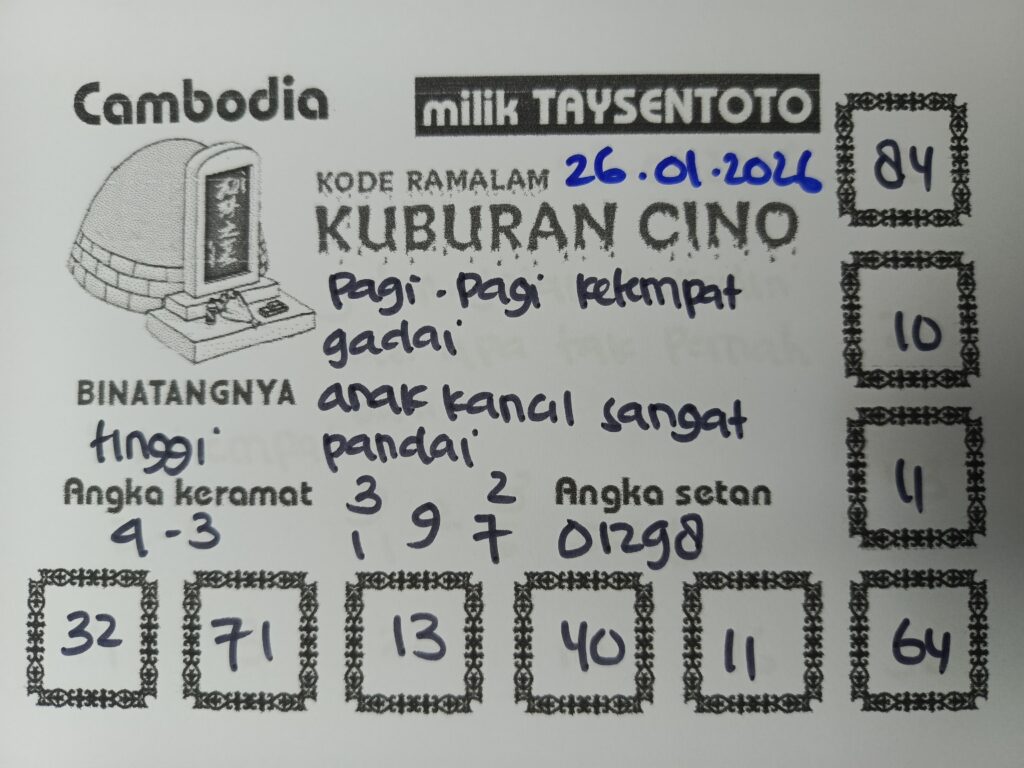 Cambodia
milik TAYSENTOTO
KODE RAMALAM 26.01.2026
KUBURAN CINO
pagi.pagi ketempat
gadai
BINATANGNYA
tinggi
anak kancil sangat
pandai
Angka keramat
9-3
3 2
9
1 7
Angka setan
01298
84
10
11
32 71 13 40 11 64